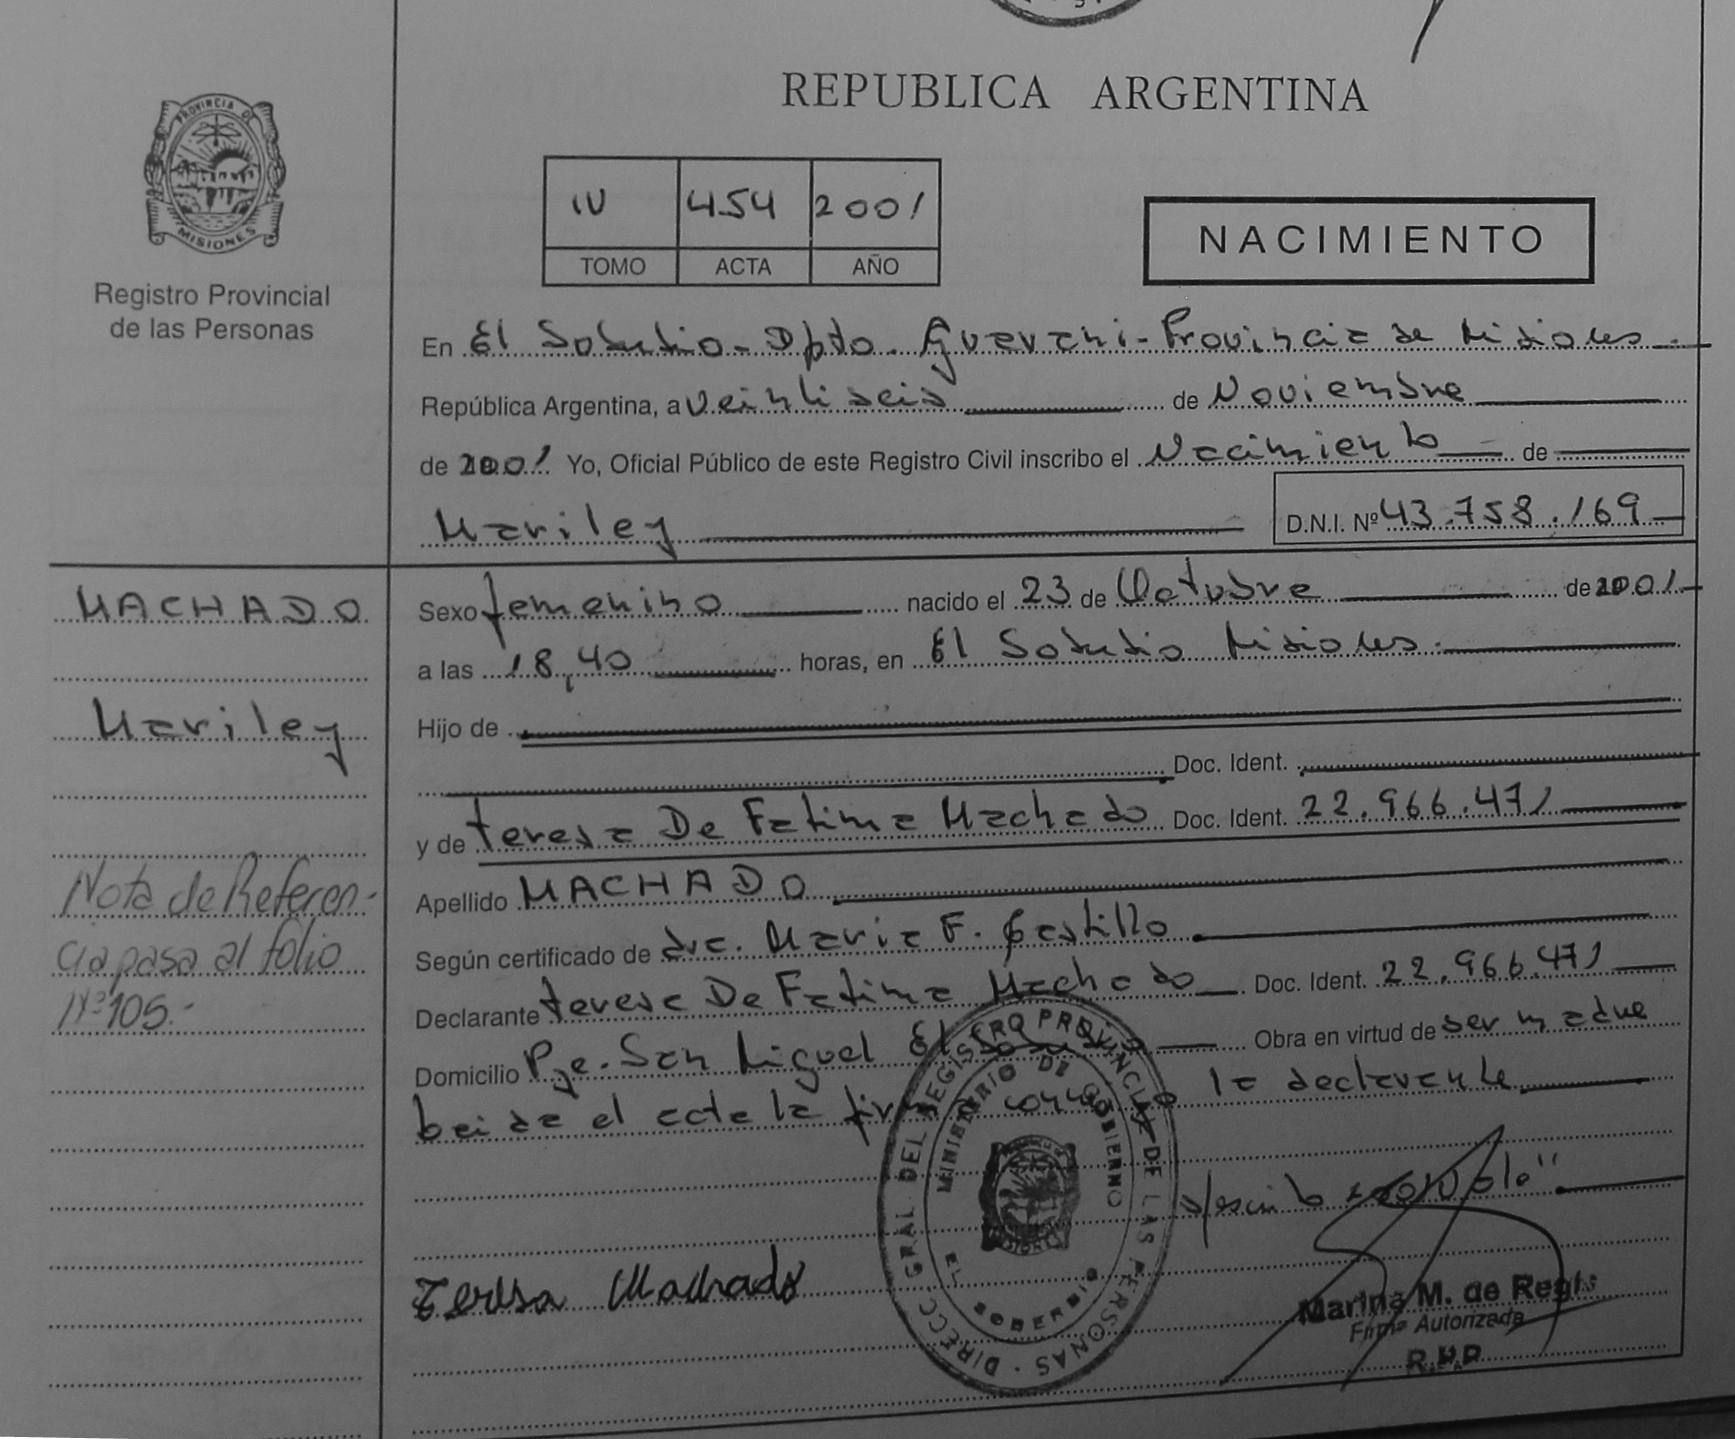 PROVINCIA DE
MISIONES
Registro Provincial
de las Personas
REPUBLICA ARGENTINA
IV 454 2001
TOMO ACTA AÑO
NACIMIENTO
En El Soberbio - Dpto. Guarani - Provincia de Misiones
República Argentina, a veintiseis de Noviembre
de 2001 Yo, Oficial Público de este Registro Civil inscribo el Nacimiento de
Mariley D.N.I. Nº 43.758.169
MACHADO
Sexo femenino nacido el 23 de Octubre de 2001
a las 18,40 horas, en El Soberbio Misiones.
Mariley
Hijo de
Doc. Ident.
y de Teresa De Fatima Machado Doc. Ident. 22.966.471
Nota de Referen-
cia pasa al folio
Nº 105.-
Apellido MACHADO
Según certificado de dra. Maria F. Castillo
Declarante Teresa De Fatima Machado Doc. Ident. 22.966.471
Domicilio Pje. San Miguel El Soberbio Obra en virtud de ser madre
leida el acta la firma conmigo la declarante
Teresa Machado
DIRECC GRAL DEL REGISTRO PROVINCIAL DE LAS PERSONAS
MINISTERIO DE GOBIERNO
MISIONES
EL SOBERBIO
Marina M. de Regis
Firma Autorizada
R.P.P